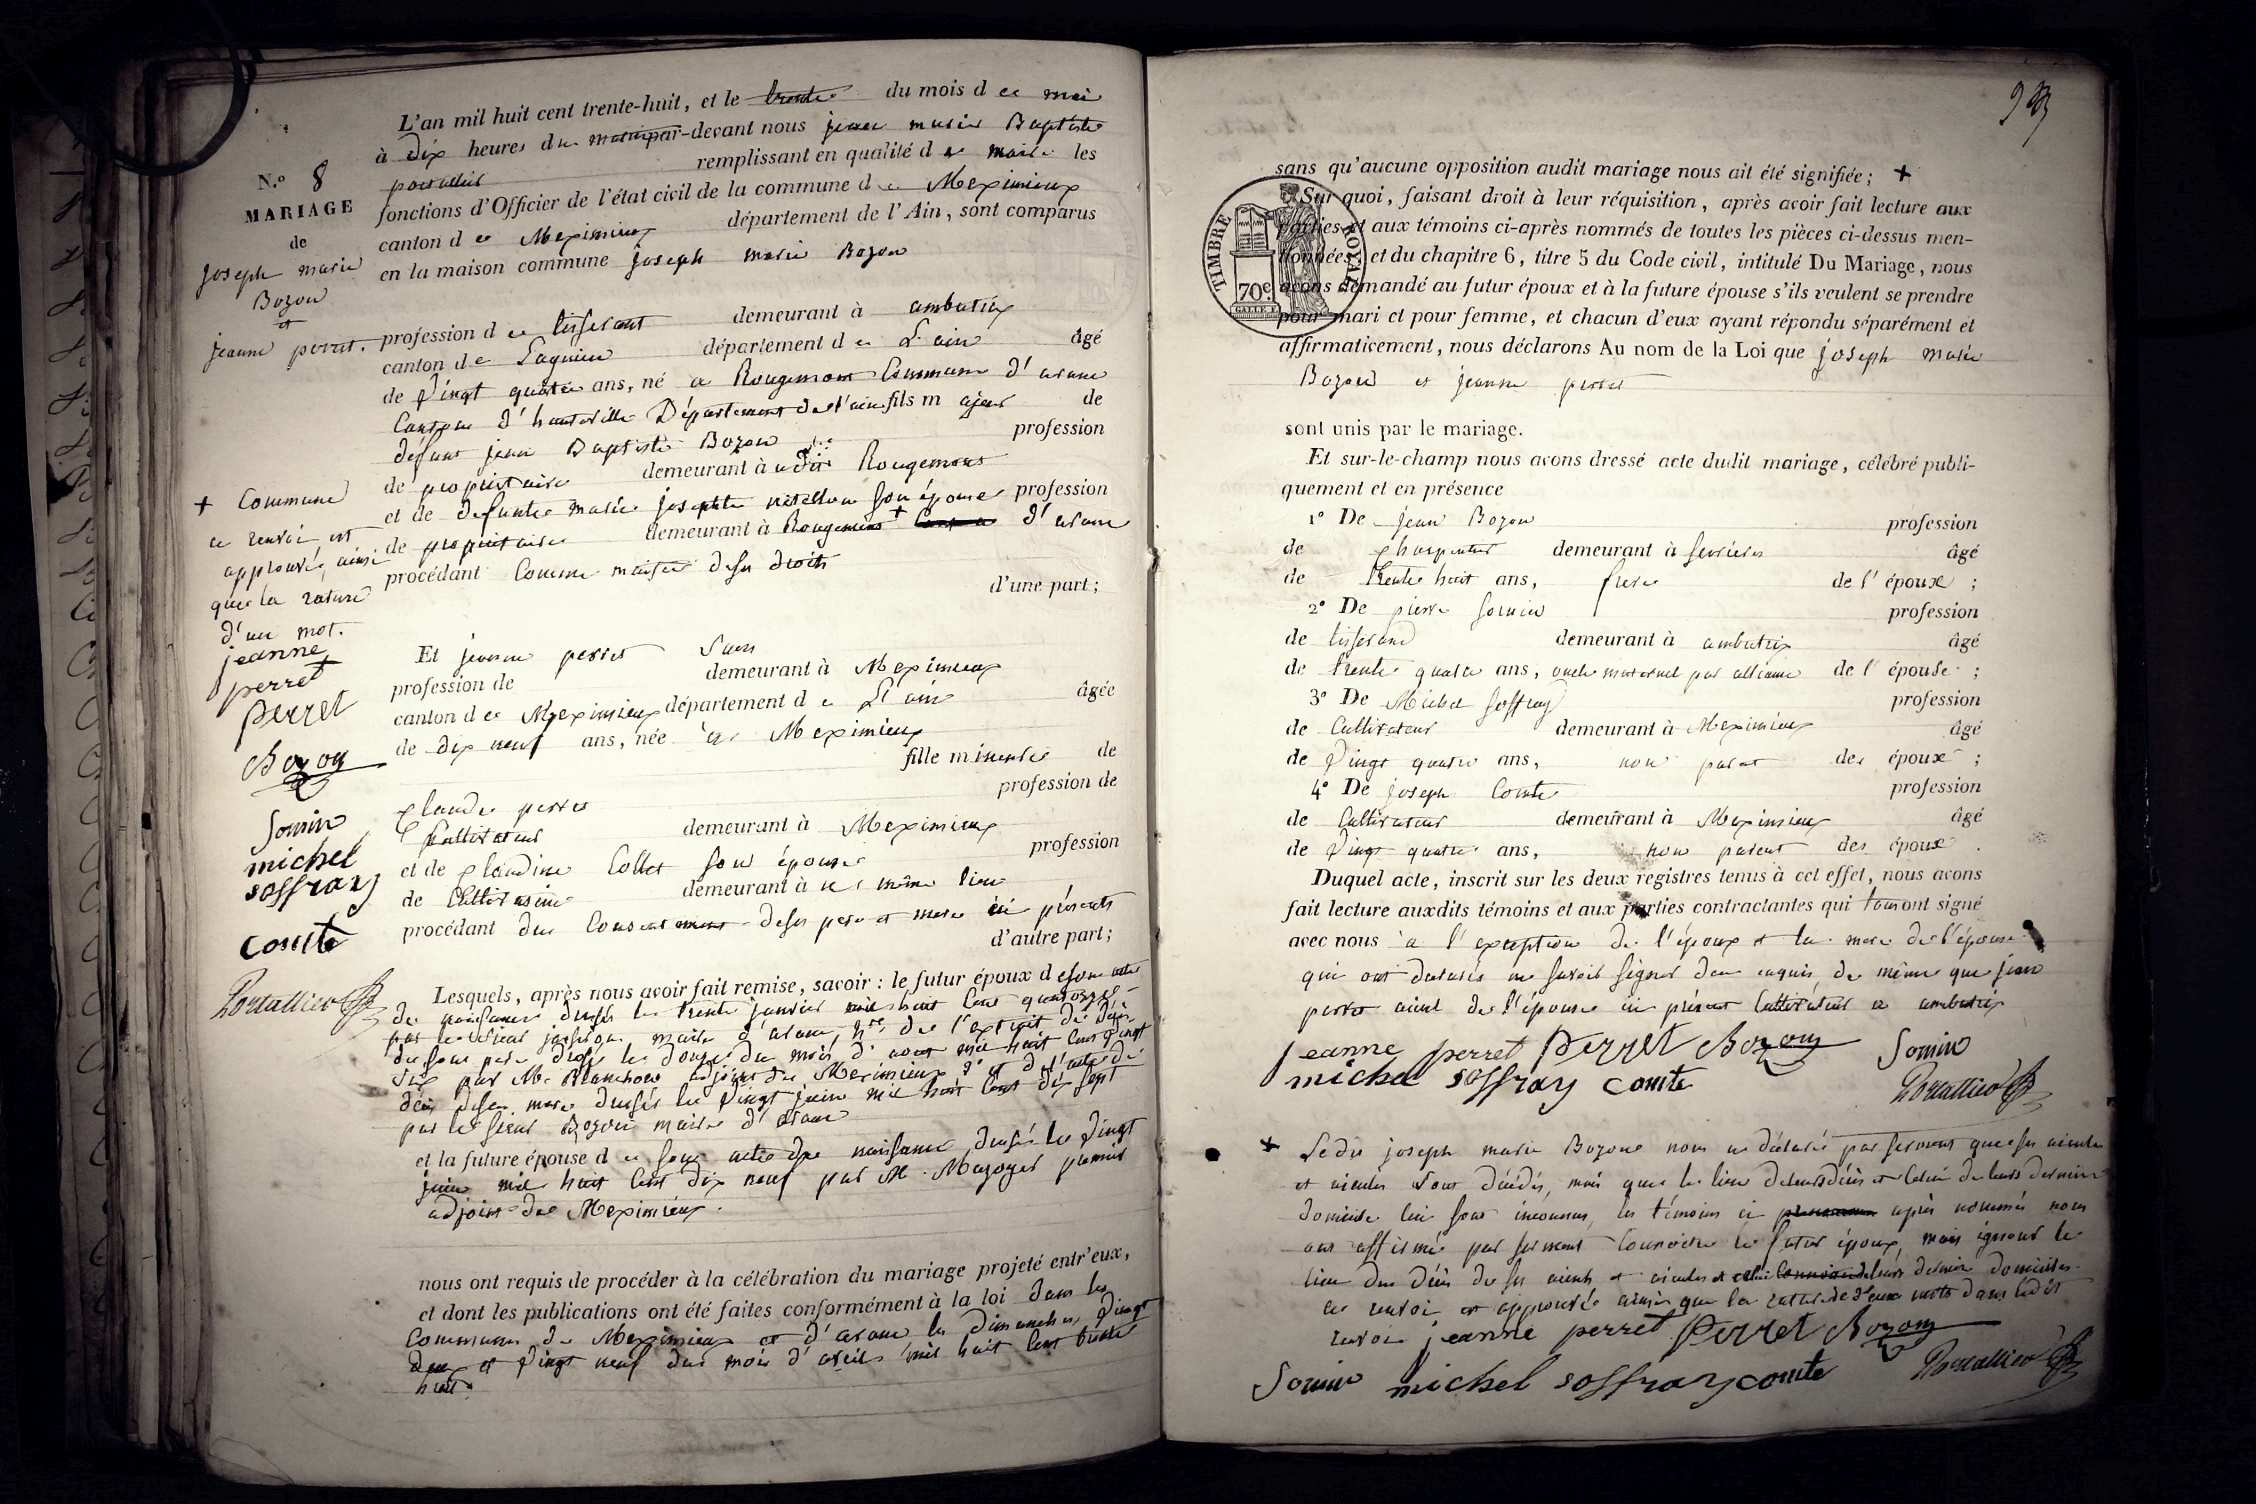 N.° 8
MARIAGE
de
joseph marie
Bozon
et
jeanne perret.
+ Commune
ce renvoi est
approuvé, ainsi
que la rature
d'un mot.
jeanne
perret
perret
Bozon
Somin
michel
soffray
comte
Portallier
L'an mil huit cent trente-huit, et le trente du mois de mai
à dix heures du matin par-devant nous jean marie Baptiste
portallier remplissant en qualité de maire les
fonctions d'Officier de l'état civil de la commune de Meximieux
canton de Meximieux département de l'Ain, sont comparus
en la maison commune joseph marie Bozon
profession de tisserant demeurant à ambutrix
canton de Lagnieu département de L'ain âgé
de Vingt quatre ans, né a Rougemont Commune d'arane
Canton d'hauteville Département de l'ain fils majeur de
défunt jean Baptiste Bozon profession
de propriétaire demeurant à udit Rougemont
et de defunte marie josephte son épouse profession
de propriétaire demeurant à Rougemont + d'arane
procédant Comme maitre de ses droits
d'une part;
Et jeanne perret Sans
profession de demeurant à Meximieux
canton de Meximieux département de L'ain âgée
de dix neuf ans, née à Meximieux
fille mineure de
Claude perret profession de
Cultivateur demeurant à Meximieux
et de Claudine Collet son épouse profession
de Cultivatrice demeurant à même lieu
procédant du Consentement de ses pere et mere ici présents
d'autre part;
Lesquels, après nous avoir fait remise, savoir : le futur époux de son acte
de naissance dressé le trente janvier mil huit Cent quatorze
par le sieur maire d'arane, 2° de l'extrait de décès
de son pere dressé le douze du mois d'aout mil huit Cent Vingt
Six par Mr Blanchon adjoint de Meximieux 3° et de l'acte de
décès de sa mere dressé le Vingt juin mil huit Cent dix sept
par le sieur Bozon maire d'arane
et la future épouse de son acte de naissance dressé le Vingt
juin mil huit Cent dix neuf par M. Mazoyer premier
adjoint de Meximieux.
nous ont requis de procéder à la célébration du mariage projeté entr'eux,
et dont les publications ont été faites conformément à la loi dans les
Communes de Meximieux et d'arane les Dimanches, Vingt
deux et Vingt neuf du mois d'avril mil huit Cent trente
huit.
sans qu'aucune opposition audit mariage nous ait été signifiée; +
Sur quoi, faisant droit à leur réquisition, après avoir fait lecture aux
parties et aux témoins ci-après nommés de toutes les pièces ci-dessus men-
tionnées, et du chapitre 6, titre 5 du Code civil, intitulé Du Mariage, nous
avons demandé au futur époux et à la future épouse s'ils veulent se prendre
pour mari et pour femme, et chacun d'eux ayant répondu séparément et
affirmativement, nous déclarons Au nom de la Loi que joseph marie
Bozon et jeanne perret
TIMBRE ROYAL
70 c.
sont unis par le mariage.
Et sur-le-champ nous avons dressé acte dudit mariage, célébré publi-
quement et en présence
1° De jean Bozon profession
de Charpentier demeurant à serrieres âgé
de trente huit ans, frere de l'époux ;
2° De pierre Somin profession
de tisserand demeurant à ambutrix âgé
de trente quatre ans, oncle maternel par alliance de l'épouse ;
3° De Michel Soffray profession
de Cultivateur demeurant à Meximieux âgé
de Vingt quatre ans, non parent des époux ;
4° De joseph Comte profession
de Cultivateur demeurant à Meximieux âgé
de Vingt quatre ans, non parent des époux .
Duquel acte, inscrit sur les deux registres tenus à cet effet, nous avons
fait lecture auxdits témoins et aux parties contractantes qui tous ont signé
avec nous à l'exception de l'époux et la mere de l'épouse
qui ont déclarés ne savoir signer de ce enquis, de même que jean
perret aieul de l'épouse ici présent Cultivateur a ambutrix
jeanne perret perret Bozon Somin
michel soffray comte Portallier
+ Ledit joseph marie Bozone nous a déclaré par serment que ses aieuls
et aieules sont décédés, mais que le lieu de leurs décès et Celui de leurs derniers
domicile lui sont inconnus, les témoins ci après nommés nous
ont affirmé par serment Connoitre le futur époux, mais ignorer le
lieu des décès de ses aieuls et aieules et celui de leurs dernier domiciles.
ce renvoi est approuvé ainsi que la rature de deux mots dans ledit
renvoi jeanne perret perret Bozon
Somin michel soffray comte Portallier